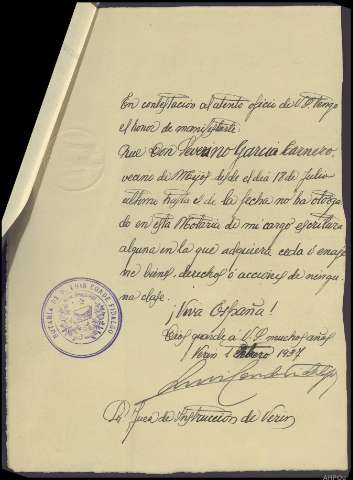 En contestación al atento oficio de V.S. tengo
el honor de manifestarle:
Que Don Severano García Carnero,
vecino de Mayos desde el día 18 de Julio
último hasta el de la fecha no ha otorga
do en esta Notaría de mi cargo escritura
alguna en la que adquiera ceda o enaje
ne bienes, derechos o acciones de ningu
na clase.
¡Viva España!
Dios guarde a V.S. muchos años
Verín Febrero 1937
NOTARIA DE D. LUIS CONDE FIDALGO
Sr. Juez de Instrucción de Verín
AHPOu